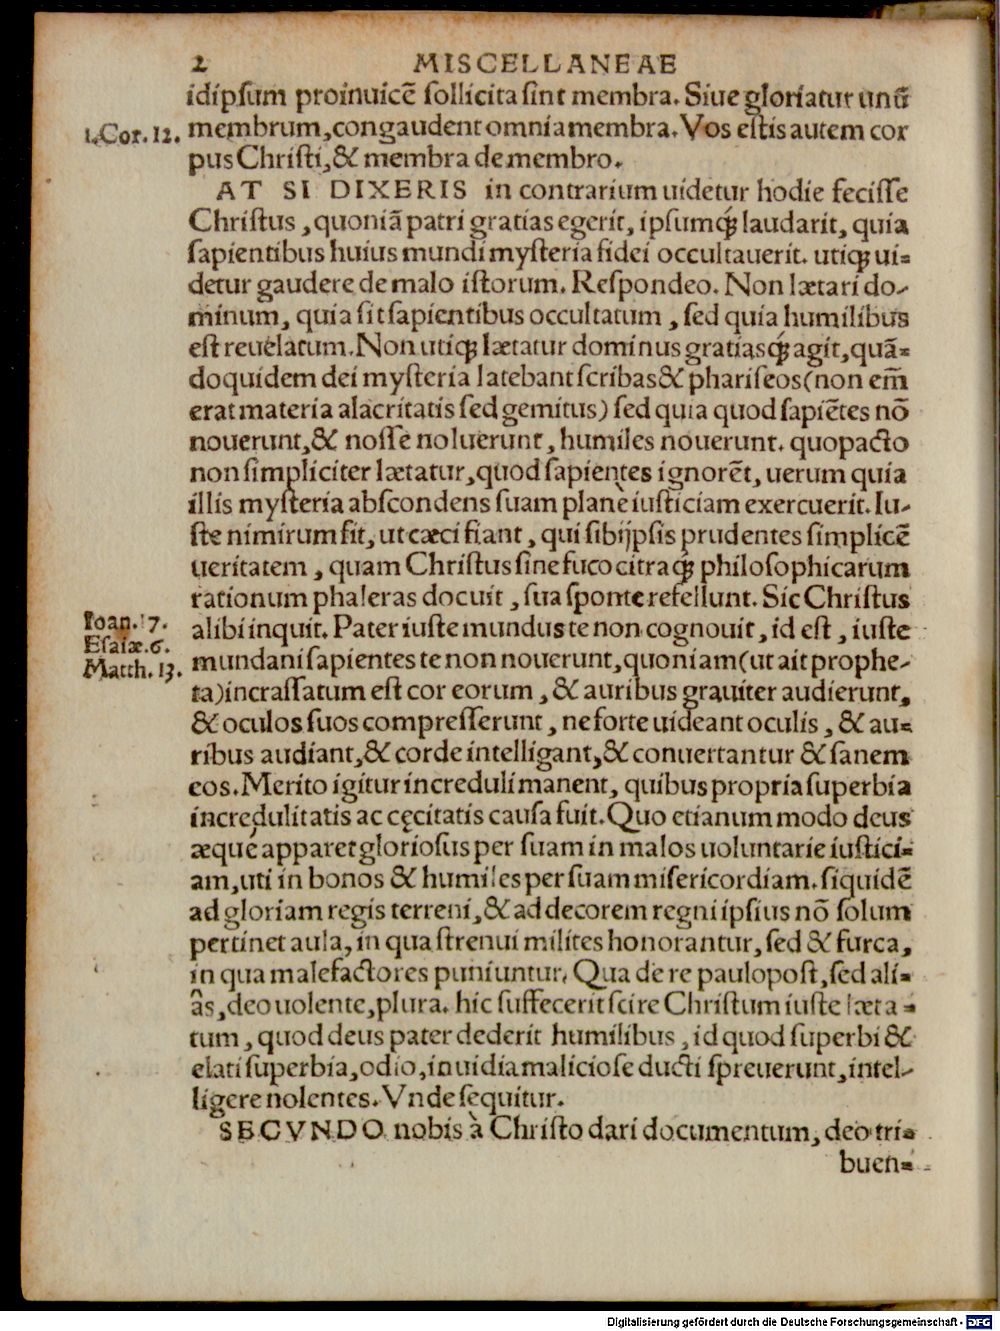 2 MISCELLANEAE
idipsum proinuicē sollicita sint membra. Siue gloriatur unū
1.Cor. 12. membrum, congaudent omnia membra. Vos estis autem cor
pus Christi, & membra de membro.
AT SI DIXERIS in contrarium uidetur hodie fecisse
Christus, quoniā patri gratias egerit, ipsumq́; laudarit, quia
sapientibus huius mundi mysteria fidei occultauerit. utiq; ui-
detur gaudere de malo istorum. Respondeo. Non lætari do-
minum, quia sit sapientibus occultatum, sed quia humilibus
est reuelatum. Non utiq; lætatur dominus gratiasq́; agit, quā-
doquidem dei mysteria latebant scribas & phariseos (non em̄
erat materia alacritatis sed gemitus) sed quia quod sapiētes nō
nouerunt, & nosse noluerunt, humiles nouerunt. quopacto
non simpliciter lætatur, quod sapientes ignorēt, uerum quia
illis mysteria abscondens suam planè iusticiam exercuerit. Iu-
ste nimirum fit, ut cæci fiant, qui sibijpsis prudentes simplicē
ueritatem, quam Christus sine fuco citraq́; philosophicarum
rationum phaleras docuit, sua sponte refellunt. Sic Christus
Ioan. 17. alibi inquit. Pater iuste mundus te non cognouit, id est, iuste
Esaiæ. 6.
Matth. 13. mundani sapientes te non nouerunt, quoniam (ut ait prophe-
ta) incrassatum est cor eorum, & auribus grauiter audierunt,
& oculos suos compresserunt, ne forte uideant oculis, & au-
ribus audiant, & corde intelligant, & conuertantur & sanem
eos. Merito igitur increduli manent, quibus propria superbia
incredulitatis ac cęcitatis causa fuit. Quo etianum modo deus
æqué apparet gloriosus per suam in malos uoluntarie iustici-
am, uti in bonos & humiles per suam misericordiam. siquidē
ad gloriam regis terreni, & ad decorem regni ipsius nō solum
pertinet aula, in qua strenui milites honorantur, sed & furca,
in qua malefactores puniuntur. Qua de re paulopost, sed ali-
âs, deo uolente, plura. hic suffecerit scire Christum iuste læta-
tum, quod deus pater dederit humilibus, id quod superbi &
elati superbia, odio, inuidia maliciose ducti spreuerunt, intel-
ligere nolentes. Vnde sequitur.
SECVNDO nobis à Christo dari documentum, deo tri-
buen-
Digitalisierung gefördert durch die Deutsche Forschungsgemeinschaft - DFG